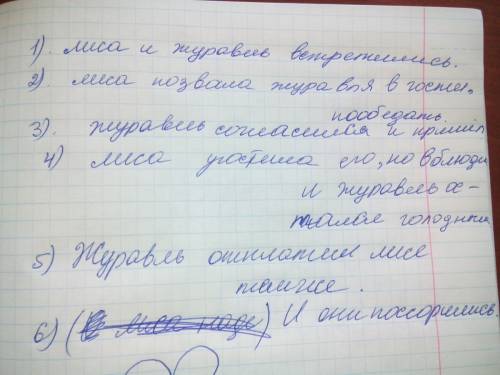 1). лиса и журавль встретились.
2). лиса позвала журавля в гости,
пообедать.
3). журавль согласился и пришёл
4) лиса угостила его, но в блюде
и журавль ос-
тался голодным
5) Журавль отплатил лисе
также.
6) И они поссорились.